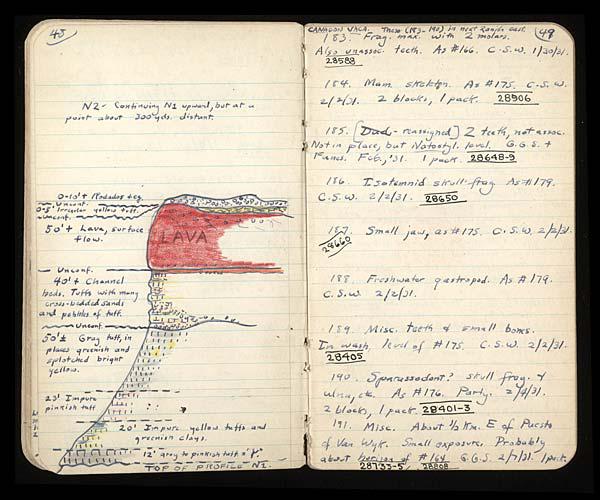 48
N2 - Continuing N1 upward, but at a
point about 300 yds. distant.
0-10'± Rodados etc.
Unconf.
0-5' Irregular yellow tuff.
Unconf.
50'± Lava, surface
flow.
LAVA
Unconf.
40'± Channel
beds. Tuffs with many
cross-bedded sands
and pebbles of tuff.
Unconf.
50'± Gray tuff, in
places greenish and
splotched bright
yellow.
25' Impure
pinkish tuff
20' Impure yellow tuffs and
greenish clays.
12' gray to pinkish tuff = "Y".
TOP OF PROFILE N1.
49
CAÑADON VACA. These (183-190) in next Zanjón east.
183. Frag. max. with 2 molars.
Also unassoc. teeth. As #166. C.S.W. 1/30/31.
28588
184. Mam. skeleton. As #175. C.S.W.
2/2/31. 2 blocks, 1 pack. 28906
185. [Dud - reassigned] 2 teeth, not assoc.
Not in place, but Notostyl. level. G.G.S. +
Feb., '31. 1 pack. 28648-9
186. Isotemnid skull frag. As #179.
C.S.W. 2/2/31. 28650
187. Small jaw, as #175. C.S.W. 2/2/31.
28660
188. Freshwater gastropod. As #179.
C.S.W. 2/2/31.
189. Misc. teeth & small bones.
In wash, level of #175. C.S.W. 2/2/31.
28405
190. Sparassodont? skull frag. &
ulna, etc. As #176. Party. 2/4/31.
2 blocks, 1 pack. 28401-3
191. Misc. About 1/2 Km. E of Puesto
of Van Wyk. Small exposure. Probably
about horizon of #164. G.G.S. 2/7/31. 1 pack.
28733-5, 28808